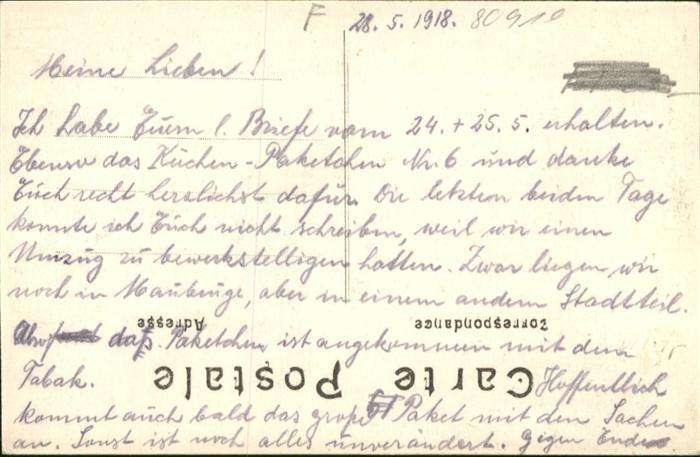 F 28.5.1918. 80910
Meine Lieben!
Ich habe Euern l. Briefe vom 24. + 25.5. erhalten.
Ebenso das Kuchen-Paketchen Nr. 6 und danke
Euch recht herzlichst dafür. Die letzten beiden Tage
konnte ich Euch nicht schreiben, weil wir einen
Umzug zu bewerkstelligen hatten. Zwar liegen wir
noch in Maubeuge, aber in einem andern Stadtteil.
Adresse Correspondance
daß Paketchen ist angekommen mit dem
Tabak. Carte Postale Hoffentlich
kommt auch bald das große Paket mit den Sachen
an. Sonst ist noch alles unverändert. Gegen Ende